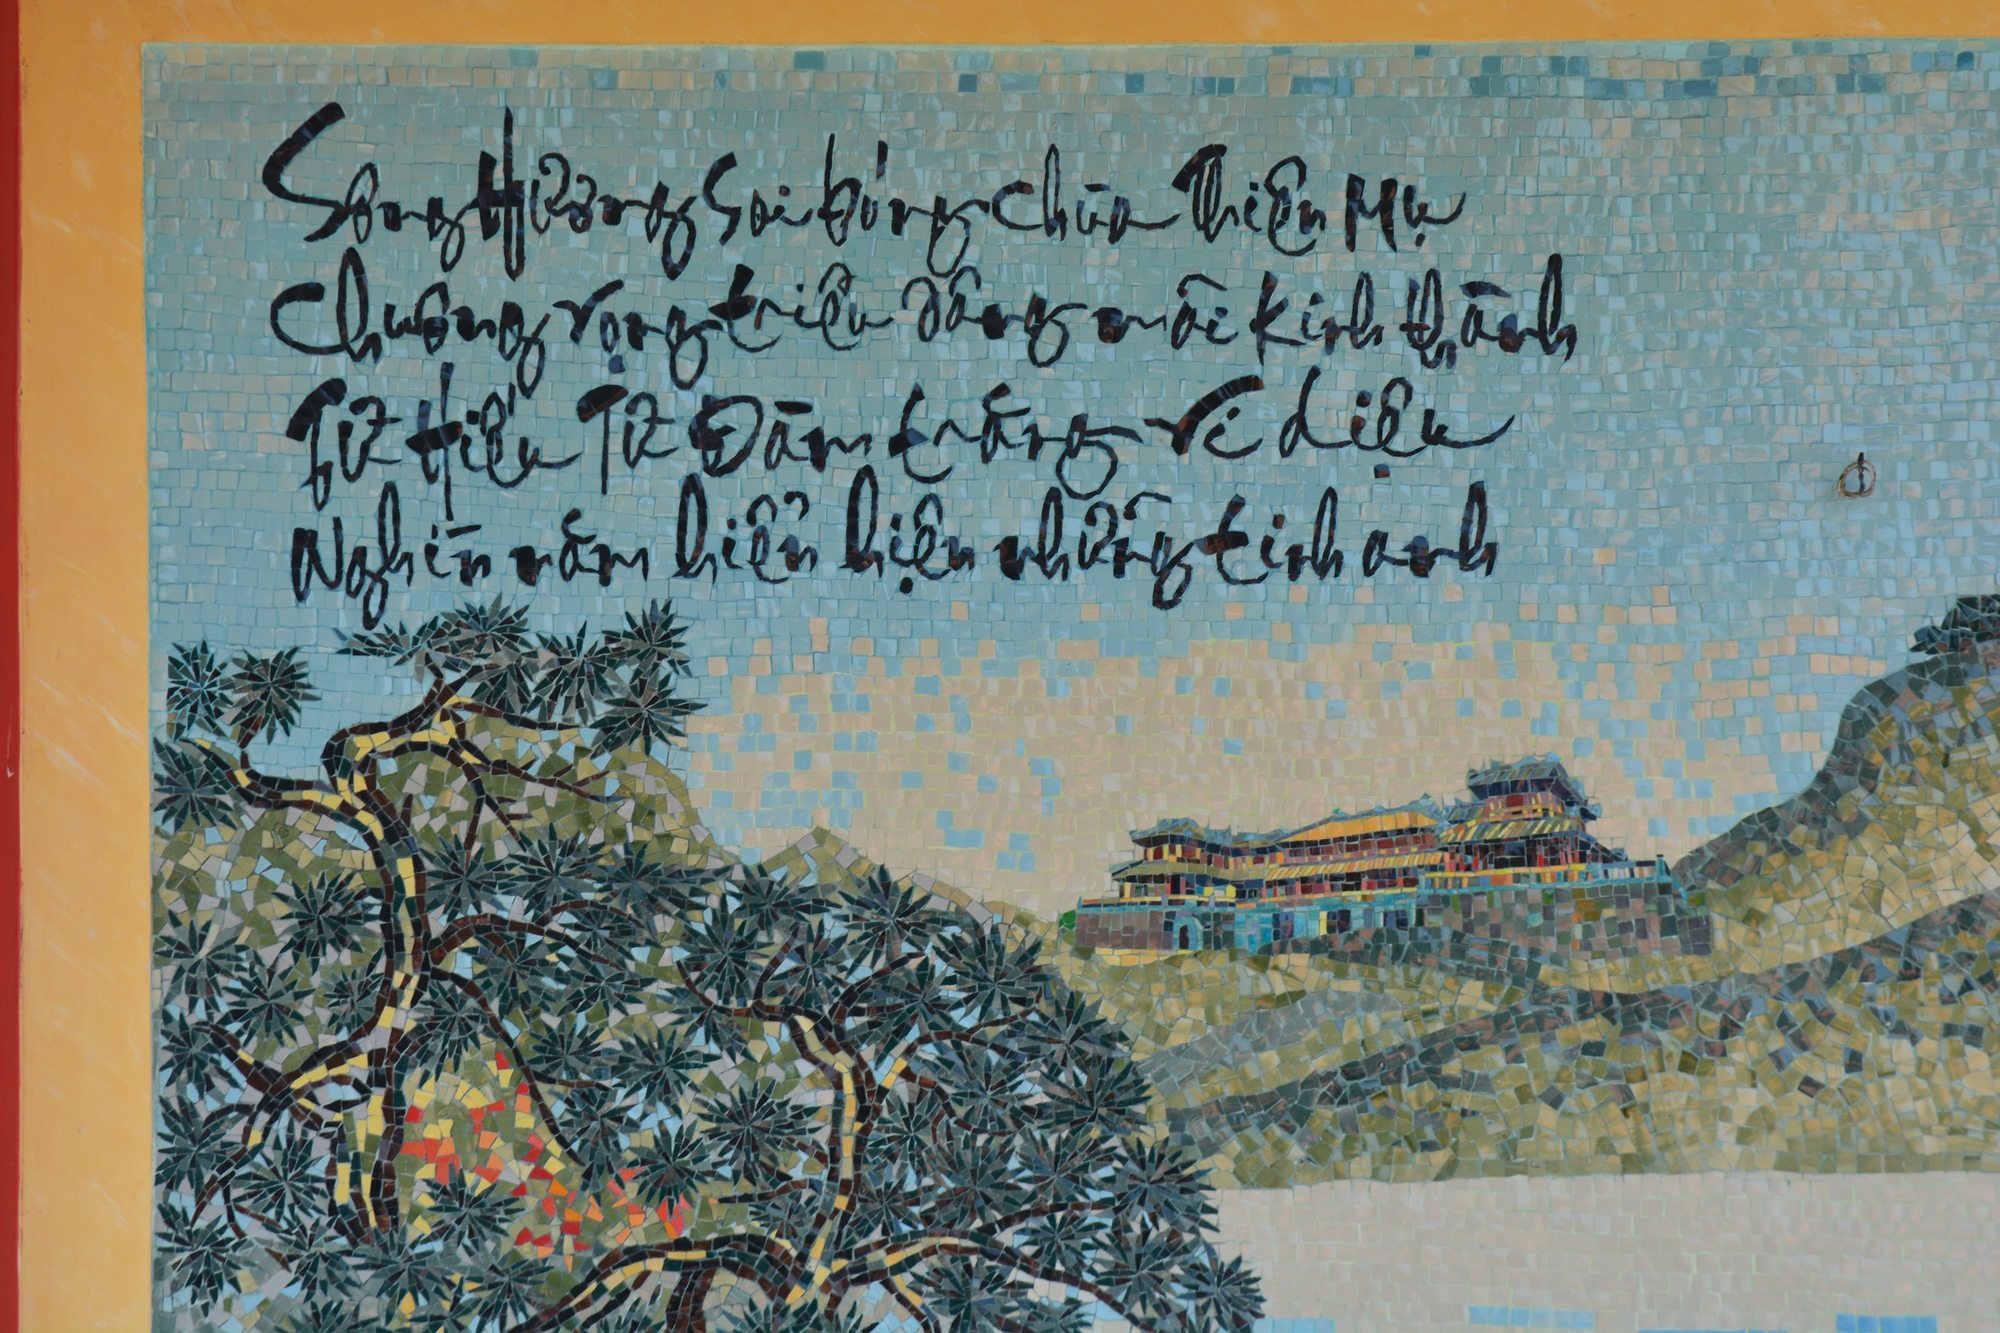 Sông Hương soi bóng chùa Thiên Mụ
Chuông vọng triều dâng mãi kinh thành
Từ Hiếu Từ Đàm trăng vi diệu
Nghìn năm hiển hiện những tinh anh